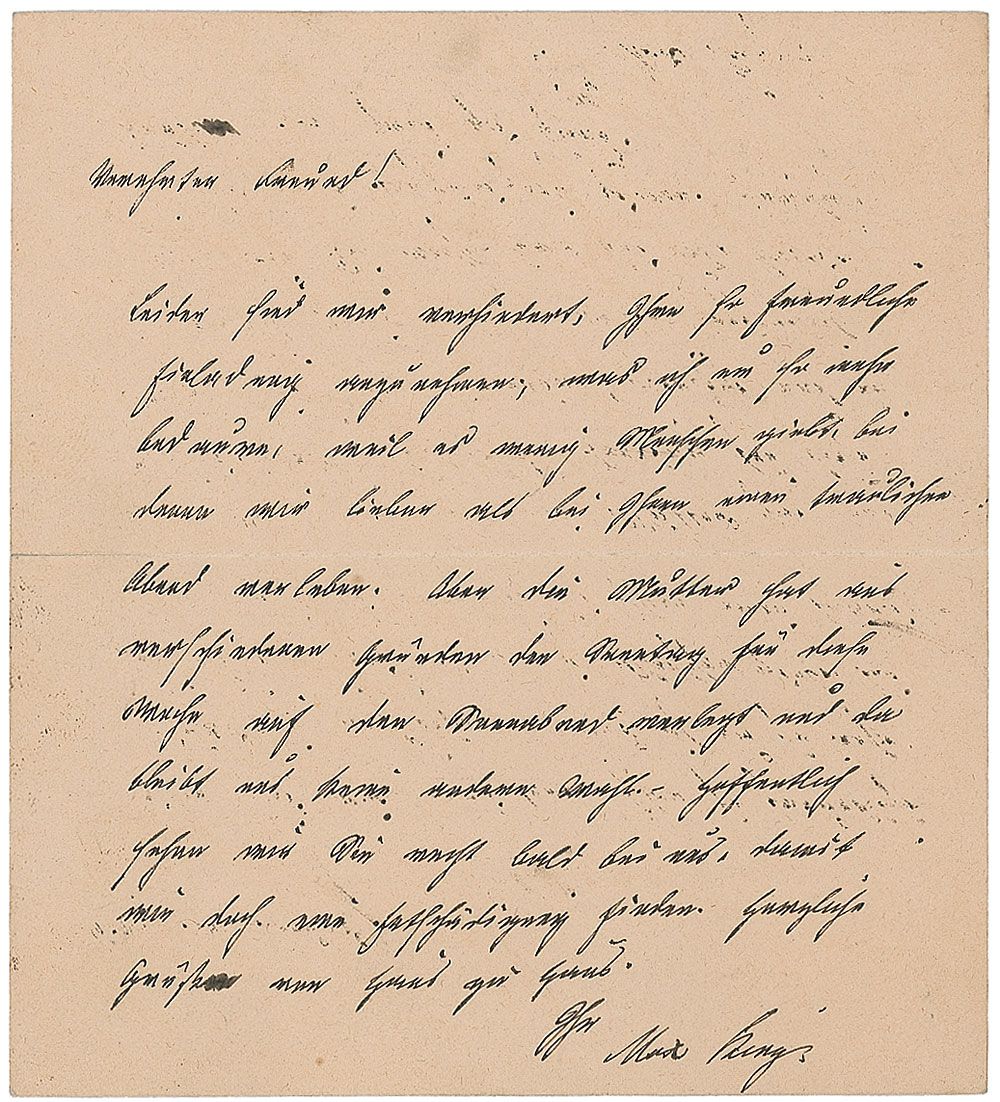 Verehrter Freund!
Leider sind wir verhindert, Ihre so freundliche
Einladung anzunehmen, was ich um so mehr
bedaure, weil es wenig Menschen giebt, bei
denen wir lieber als bei Ihnen einen traulichen
Abend verleben. Aber die Mutter hat aus
verschiedenen Gründen den Sonntag für diese
Woche auf den Sonnabend verlegt und da
bleibt uns keine andere Wahl. – Hoffentlich
sehen wir Sie recht bald bei uns, damit
wir doch eine Entschädigung finden. Herzliche
Grüße von Haus zu Haus.
Ihr
Max